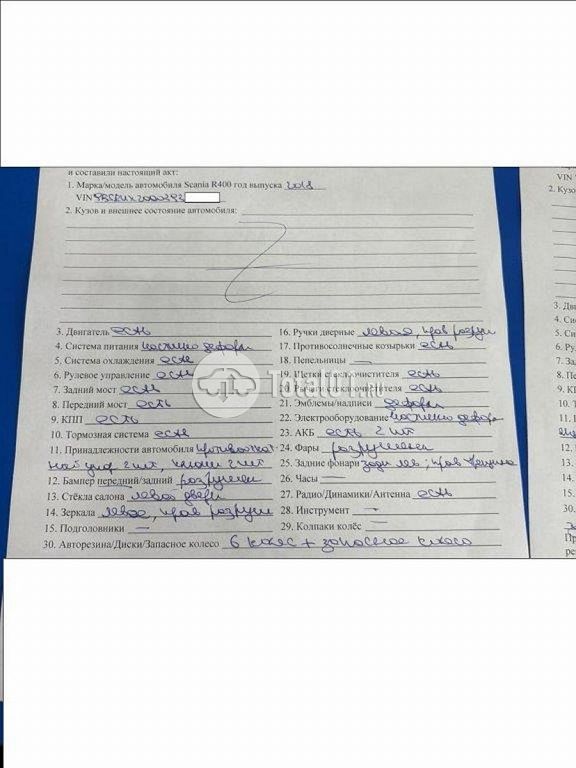 и составили настоящий акт:
1. Марка/модель автомобиля Scania R400 год выпуска 2018
VIN
2. Кузов и внешнее состояние автомобиля:
Z
3. Двигатель есть
4. Система питания частично деформ
5. Система охлаждения есть
6. Рулевое управление есть
7. Задний мост есть
8. Передний мост есть
9. КПП есть
10. Тормозная система есть
11. Принадлежности автомобиля противоокат
2 шт, 2 шт
12. Бампер передний/задний разрушен
13. Стёкла салона левой двери
14. Зеркала левое, прав разруш
15. Подголовники —
16. Ручки дверные левая, прав разруш
17. Противосолнечные козырьки есть
18. Пепельницы —
19. Щетки стеклоочистителя есть
20. Рычаги стеклоочистителя есть
21. Эмблемы/надписи деформ
22. Электрооборудование частично деформ
23. АКБ есть 2 шт
24. Фары разрушены
25. Задние фонари задн лев, прав трещина
26. Часы —
27. Радио/Динамики/Антенна есть
28. Инструмент —
29. Колпаки колёс —
30. Авторезина/Диски/Запасное колесо 6 колес + запасное колесо
TotalCar.ru